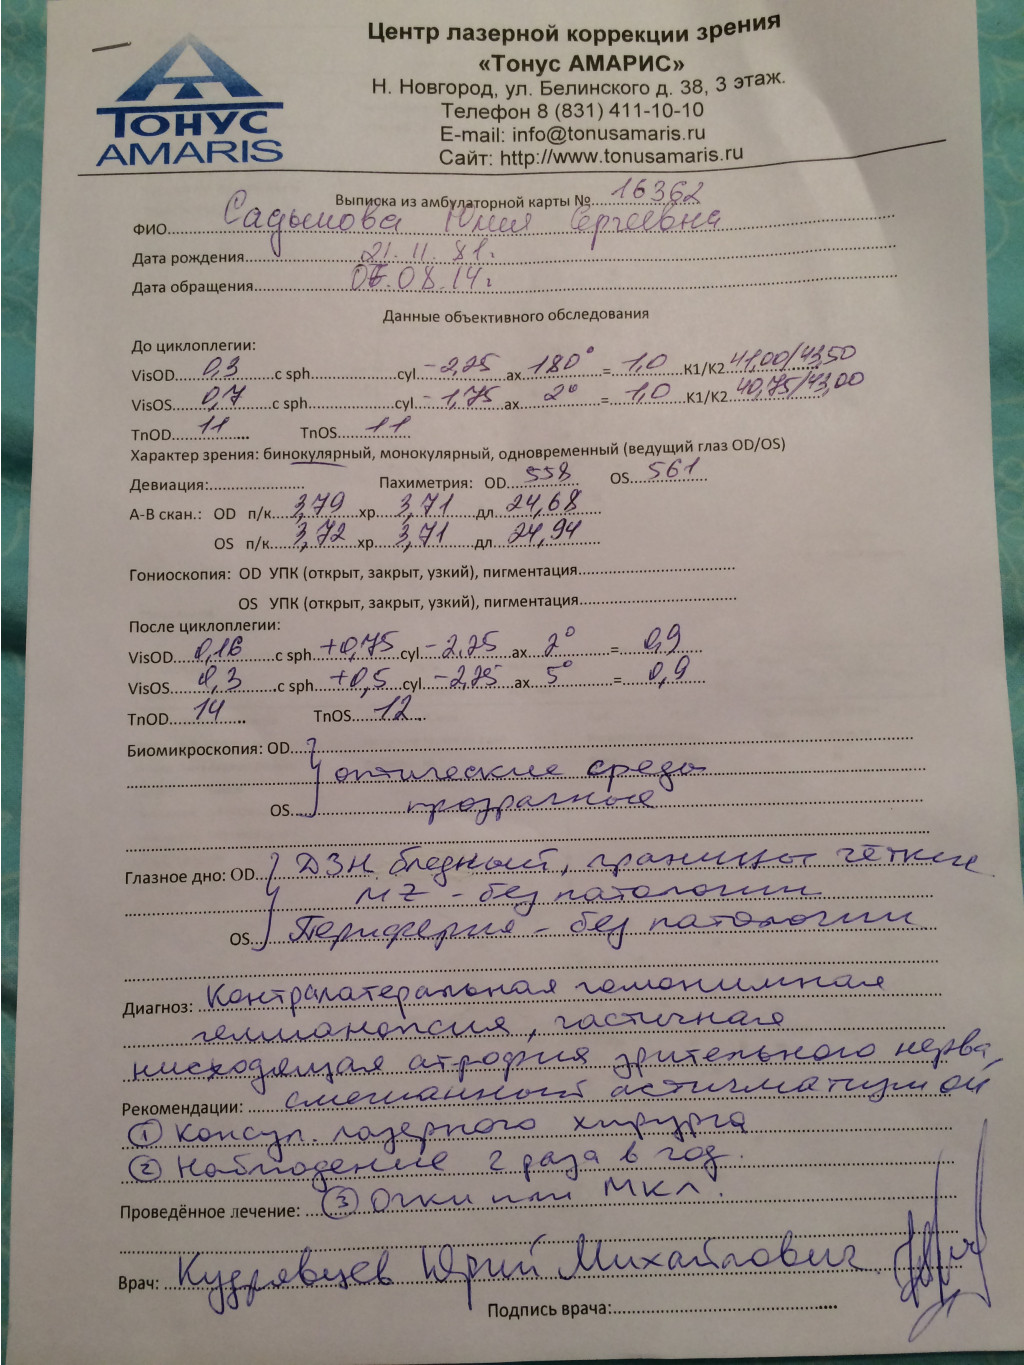 ТОНУС
AMARIS
Центр лазерной коррекции зрения
«Тонус АМАРИС»
Н. Новгород, ул. Белинского д. 38, 3 этаж.
Телефон 8 (831) 411-10-10
E-mail: info@tonusamaris.ru
Сайт: http://www.tonusamaris.ru
Выписка из амбулаторной карты № 16362
ФИО Садымова Юлия Сергеевна
Дата рождения 21.11.81г.
Дата обращения 06.08.14г
Данные объективного обследования
До циклоплегии:
VisOD 0,3 с sph cyl -2,25 ax 180° = 1,0 К1/К2 41,00/43,50
VisOS 0,7 с sph cyl -1,75 ax 2° = 1,0 К1/К2 40,75/43,00
TnOD 11 TnOS 11
Характер зрения: бинокулярный, монокулярный, одновременный (ведущий глаз OD/OS)
Девиация: Пахиметрия: OD 558 OS 561
А-В скан.: OD п/к 3,79 хр 3,71 дл 24,68
OS п/к 3,72 хр 3,71 дл 24,94
Гониоскопия: OD УПК (открыт, закрыт, узкий), пигментация
OS УПК (открыт, закрыт, узкий), пигментация
После циклоплегии:
VisOD 0,16 с sph +0,75 cyl -2,25 ax 2° = 0,9
VisOS 0,3 с sph +0,5 cyl -2,25 ax 5° = 0,9
TnOD 14 TnOS 12
Биомикроскопия: OD
оптические среды
OS прозрачные
Глазное дно: OD ДЗН бледный, границы чёткие
MZ - без патологии
OS Периферия - без патологии
Диагноз: Контрлатеральная гомонимная
гемианопсия, частичная
нисходящая атрофия зрительного нерва,
Рекомендации: смешанный астигматизм ОИ
① Консул. лазерного хирурга
② Наблюдение 2 раза в год.
Проведённое лечение: ③ Очки или МКЛ.
Врач: Кудрявцев Юрий Михайлович
Подпись врача: